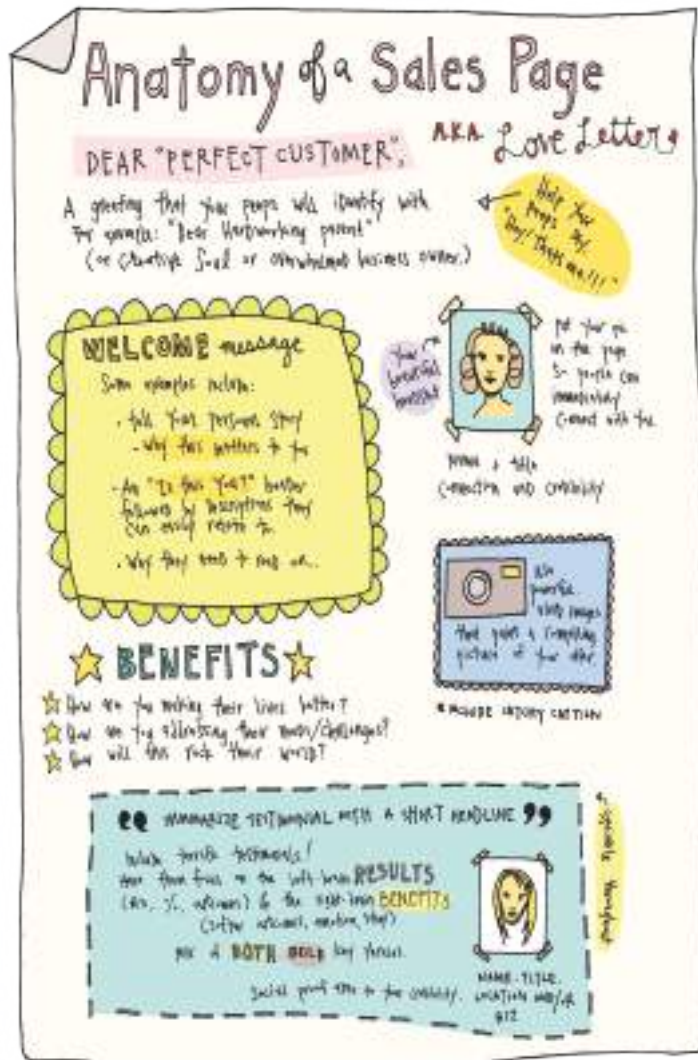 Anatomy of a Sales Page
A.K.A. Love Letter
DEAR "PERFECT CUSTOMER",
A greeting that your peeps will identify with
For example: "Dear Hardworking parent"
(or Creative Soul or overwhelmed business owner.)
Help Your
peeps say
"Hey! That's me!!!"
WELCOME message
Some examples include:
- tell your personal story
- Why this matters to you
- An "Is this You?" header
followed by descriptions they
can easily relate to
- Why they need to read on..
Your
beautiful
headshot
put your pic
on the page
so people can
immediately
connect with you.
name + title
connection and credibility
Use
powerful
images
that paint a compelling
picture of your offer
BENEFITS
How are you making their lives better?
How are you addressing their needs/challenges?
How will this rock their world?
SUMMARIZE TESTIMONIAL WITH A SHORT HEADLINE
Include terrific testimonials!
Have them focus on the left-brain RESULTS
(#s, %, outcomes) & the right-brain BENEFITS
(softer outcomes, emotion, story)
mix of BOTH BOLD key phrases.
Social proof adds to your credibility.
NAME, TITLE,
LOCATION AND/OR
BIZ